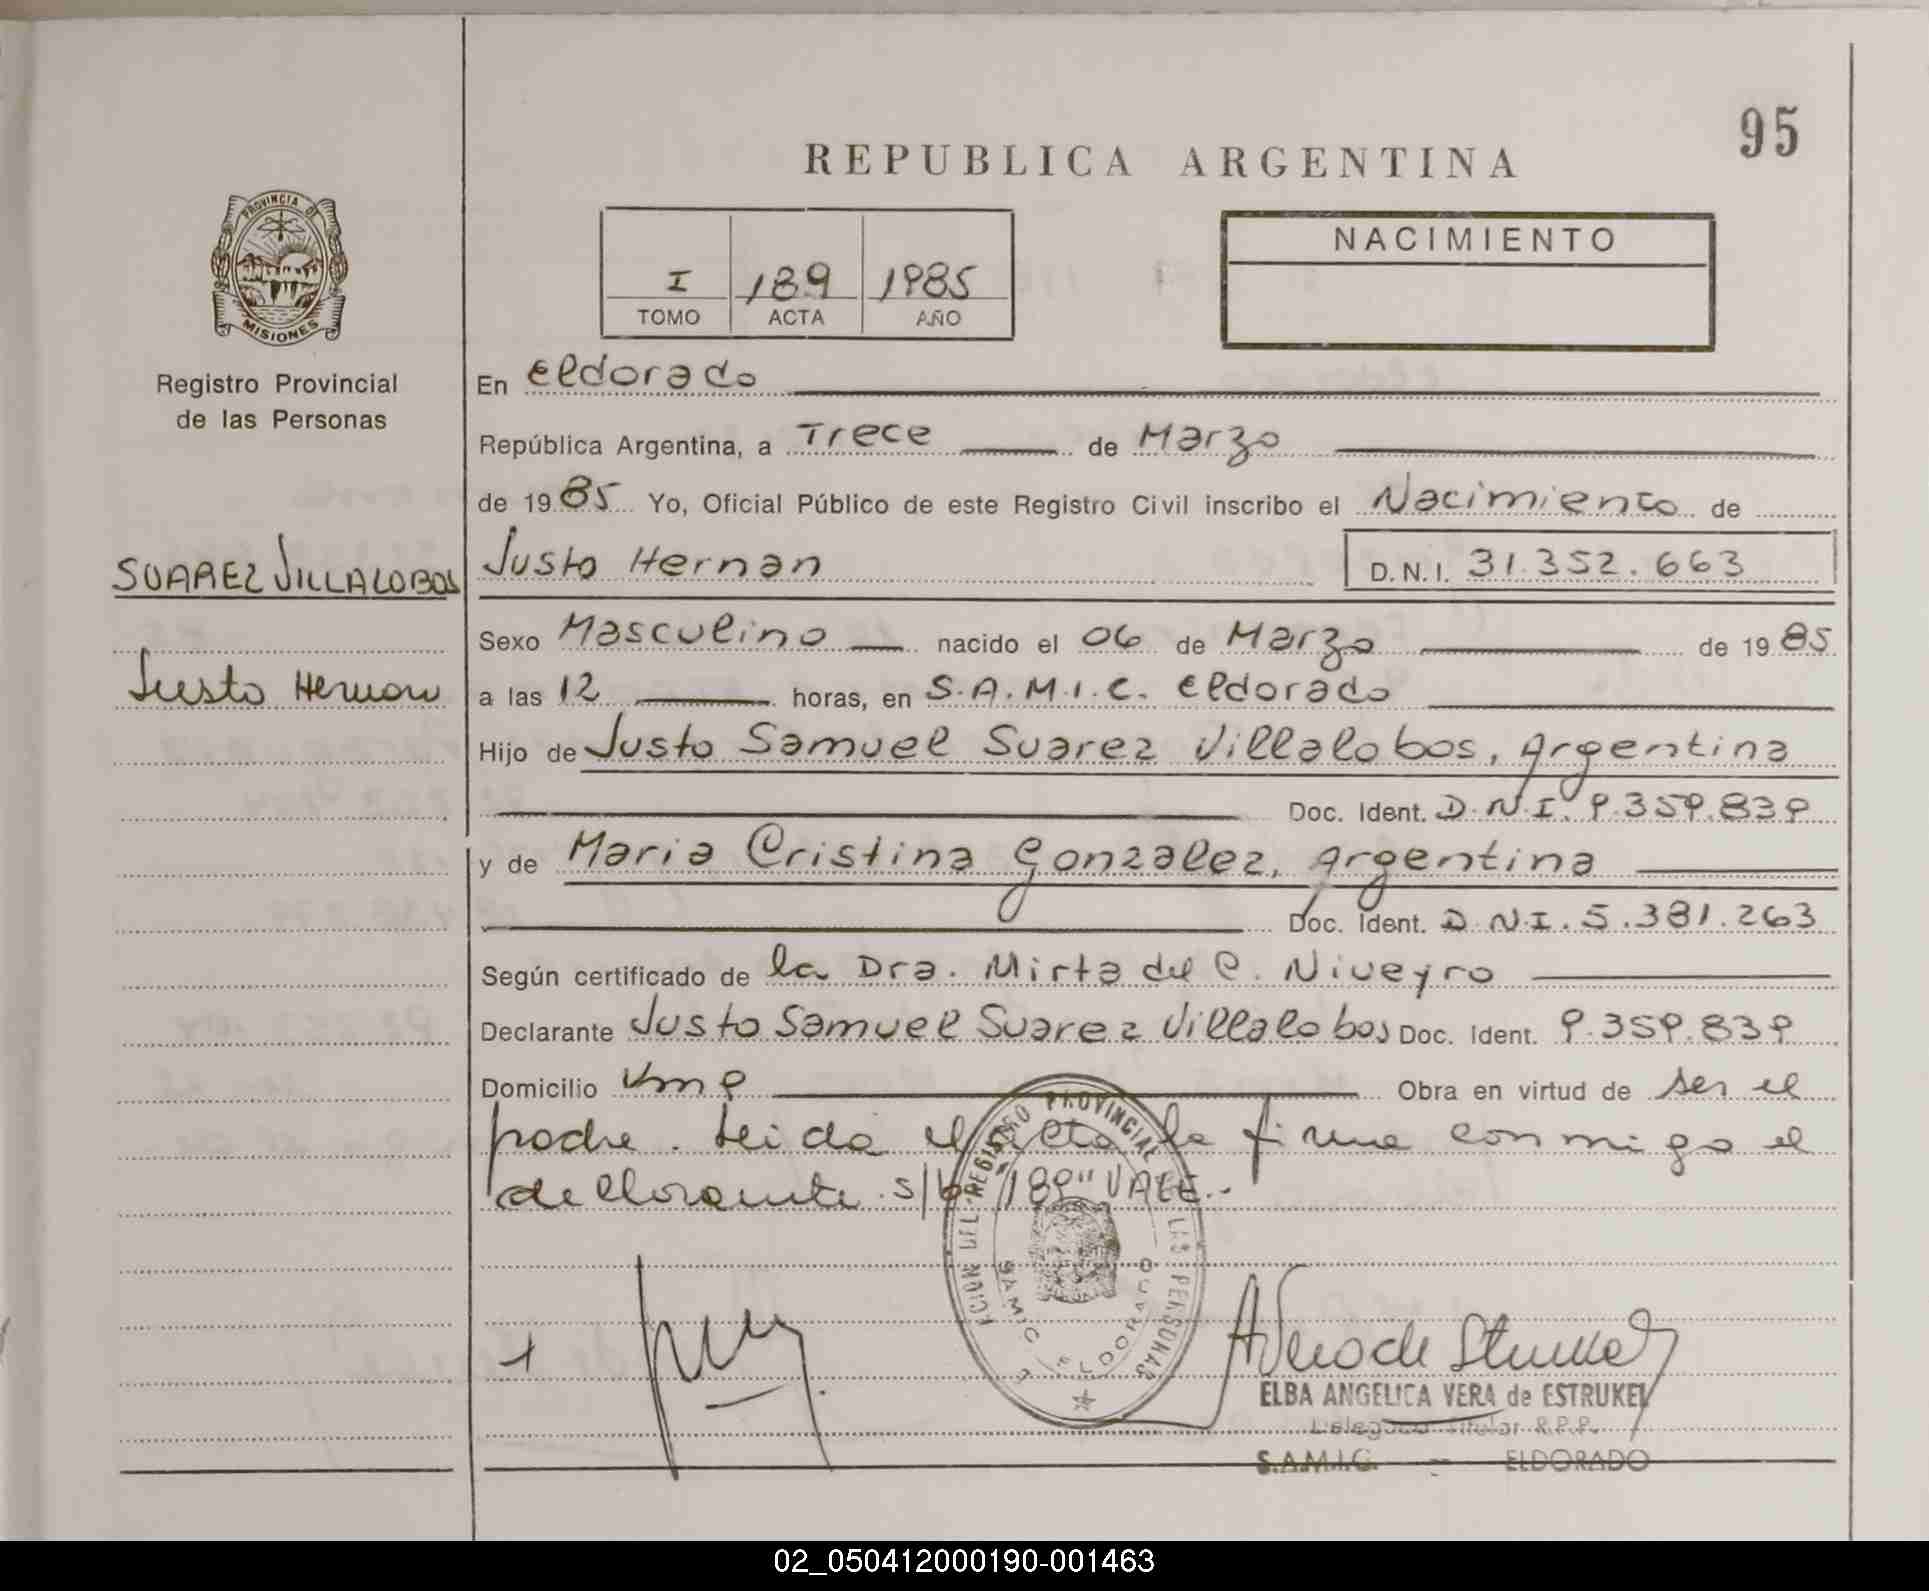 95
REPUBLICA ARGENTINA
PROVINCIA DE
MISIONES
Registro Provincial
de las Personas
I 189 1985
TOMO ACTA AÑO
NACIMIENTO
En Eldorado
República Argentina, a Trece de Marzo
de 1985 Yo, Oficial Público de este Registro Civil inscribo el Nacimiento de
SUAREZ VILLALOBOS
Justo Hernan D.N.I. 31.352.663
Sexo Masculino nacido el 06 de Marzo de 1985
Justo Hernan
a las 12 horas, en S.A.M.I.C. Eldorado
Hijo de Justo Samuel Suarez Villalobos, Argentina
Doc. Ident. D.N.I. 9.359.839
y de Maria Cristina Gonzalez, Argentina
Doc. Ident. D.N.I. 5.381.263
Según certificado de la Dra. Mirta del C. Niveyro
Declarante Justo Samuel Suarez Villalobos Doc. Ident. 9.359.839
Domicilio Km 9 Obra en virtud de ser el
padre. Leida el acta la firma conmigo el
declarante. s/b "189" VALE.-
REGISTRO PROVINCIAL
LAS PERSONAS
SAMIC ELDORADO
ELBA ANGELICA VERA de ESTRUKEL
Titular R.P.P.
S.A.M.I.C. - ELDORADO
02_050412000190-001463